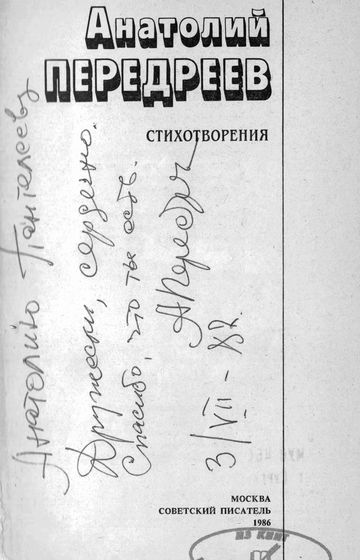 Анатолий
ПЕРЕДРЕЕВ
СТИХОТВОРЕНИЯ
Анатолию Пантелееву
Дружески, сердечно.
Спасибо, что ты есть.
АПередр
3/VII-87.
МОСКВА
СОВЕТСКИЙ ПИСАТЕЛЬ
1986
ИЗ КНИГ